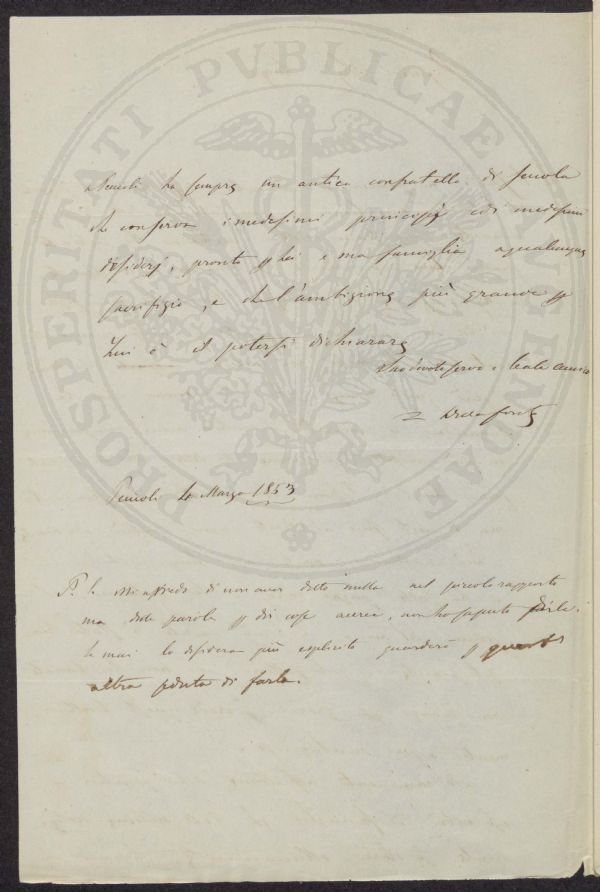 PROSPERITATI PVBLICAE AVGENDAE
a Pescioli ha sempre un antico confratello di scuola
che conserva i medesimi principj e di medesimi
desiderj, pronto p lei e sua famiglia a qualunque
sacrifizio, e che l'ambizione più grande p
Lui è il potersi dichiarare
Suo devoto servo e leale amico
4 Marzo 1853
P. S. Mi affredo di non aver detto nulla nel piccolo rapporto
ma dote parole p dir cose acerca, non ho saputo dirle.
Se mai lo desidera più esplicito guarderò p quant'
altro potrò di farlo.